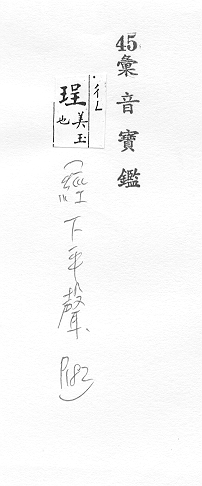 45彙音寶鑑
珵美玉也
(經下平聲P182)